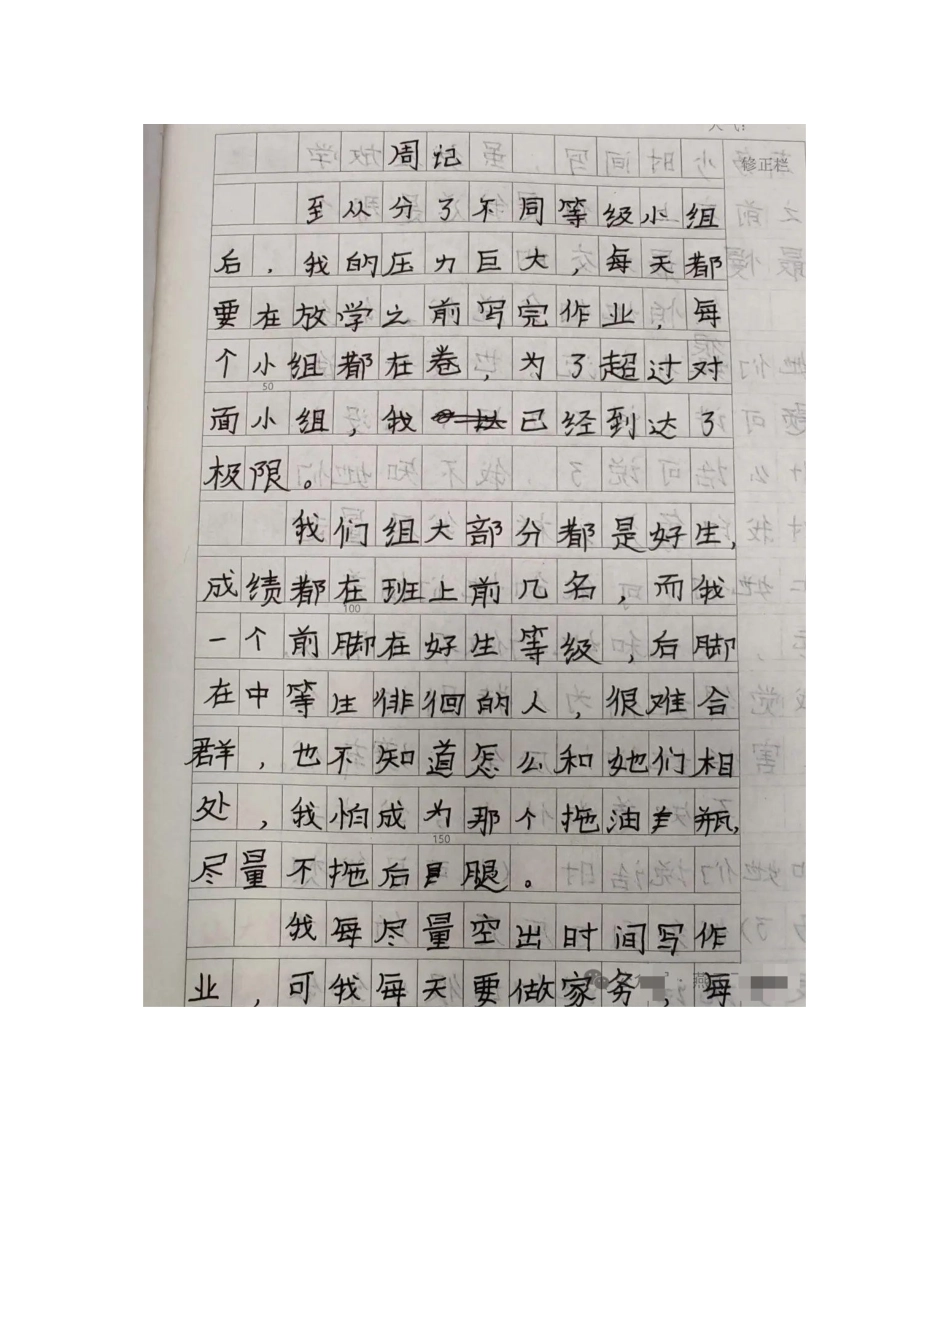 周记
修正栏
至从分了不同等级小组
后，我的压力巨大，每天都
要在放学之前写完作业，每
个小组都在卷，为了超过对
50
面小组，我已经到达了
极限。
我们组大部分都是好生，
成绩都在班上前几名，而我
100
一个前脚在好生等级，后脚
在中等生徘徊的人，很难合
群，也不知道怎么和她们相
处，我怕成为那个拖油瓶，
150
尽量不拖后腿。
我每尽量空出时间写作
业，可我每天要做家务，每